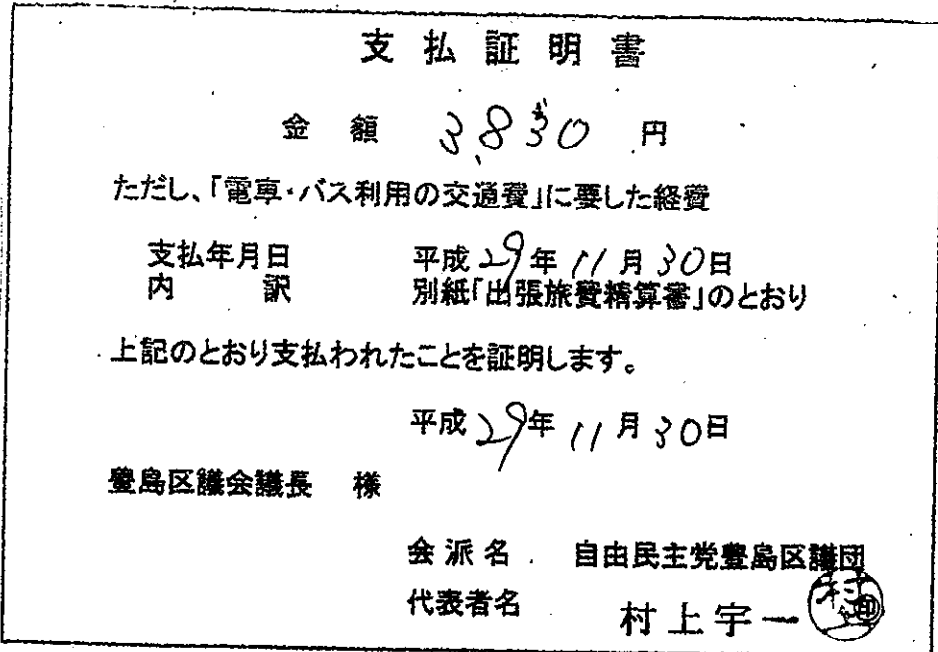 支払証明書
金額 3,830 円
ただし、「電車・バス利用の交通費」に要した経費
支払年月日 平成29年11月30日
内訳 別紙「出張旅費精算書」のとおり
上記のとおり支払われたことを証明します。
平成29年11月30日
豊島区議会議長 様
会派名 自由民主党豊島区議団
代表者名 村上宇一 印